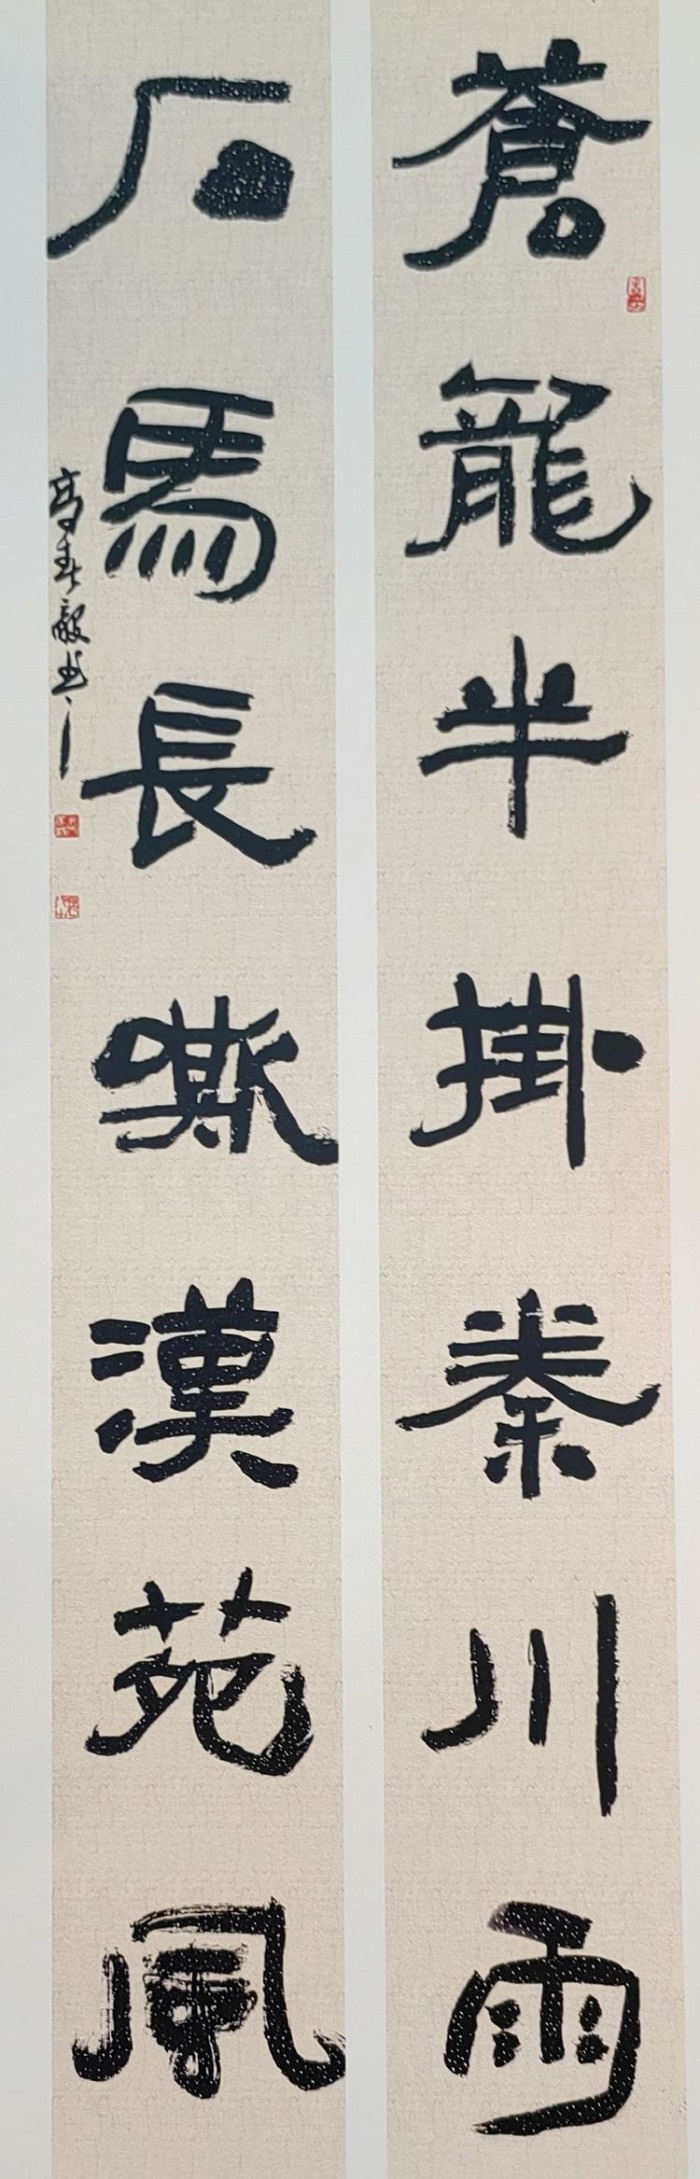 蒼龍半掛秦川雨
石馬長嘶漢苑風
高春毅书